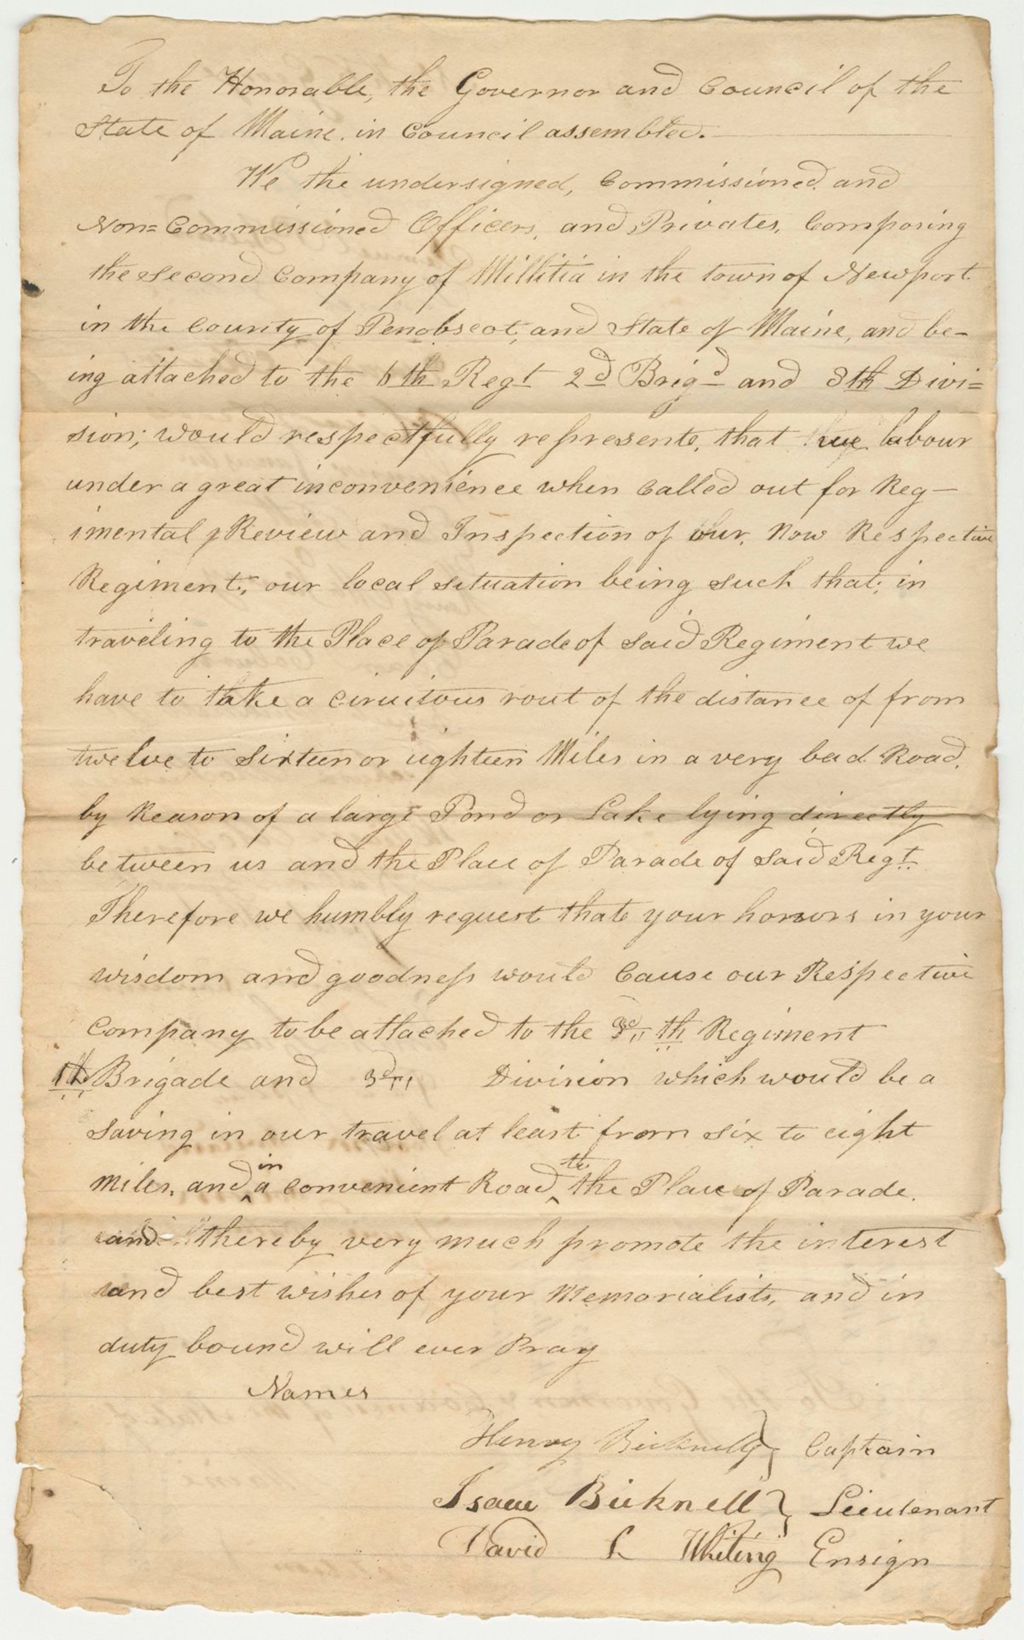 To the Honorable, the Governor and Council of the
State of Maine in Council assembled.
We the undersigned, Commissioned and
Non=Commissioned Officers, and Privates, Composing
the Second Company of Millitia in the town of Newport
in the County of Penobscot, and State of Maine, and be-
ing attached to the 6th Regt 2d Brigd and 8th Divi=
sion; would respectfully represente, that we labour
under a great inconvenience when Called out for Reg-
imental Review and Inspection of our Now Respective
Regiment, our local situation being such that, in
traveling to the Place of Parade of Said Regiment we
have to take a ciruitous rout of the distance of from
twelve to Sixteen or eighteen Miles in a very bad Road,
by Reason of a large Pond or Lake lying directly
between us and the Place of Parade of Said Regt.
Therefore we humbly request that your honors in your
wisdom and goodness would Cause our Respective
Company to be attached to the th Regiment
1st Brigade and 3d Division which would be a
Saving in our travel at least from six to eight
Miles, and in a convenient Road to the Place of Parade.
and thereby very much promote the interest
and best wishes of your Memorialists, and in
duty bound will ever Pray
Names
Henry Bicknell } Captain
Isaac Bicknell } Lieutenant
David L Whiting Ensign